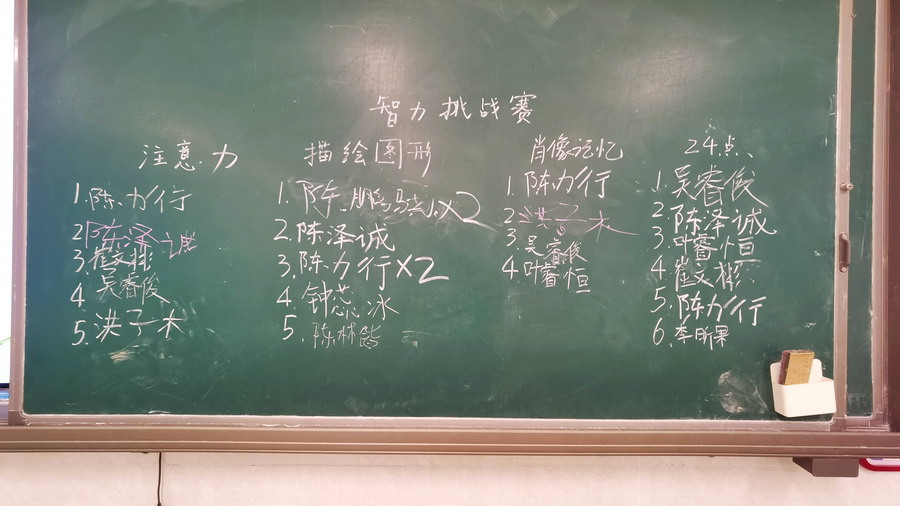 智力挑战赛
注意力
1.陈力行
2陈泽诚
3.崔文彬
4吴睿俊
5.洪子木
描绘图形
1.陈鹏骁X2
2.陈泽诚
3.陈力行X2
4.钟芯冰
5.陈林
肖像记忆
1.陈力行
2洪子木
3.吴睿俊
4.叶睿恒
24点、
1.吴睿俊
2.陈泽诚
3.叶睿恒
4崔文彬
5.陈力行
6.李昕果